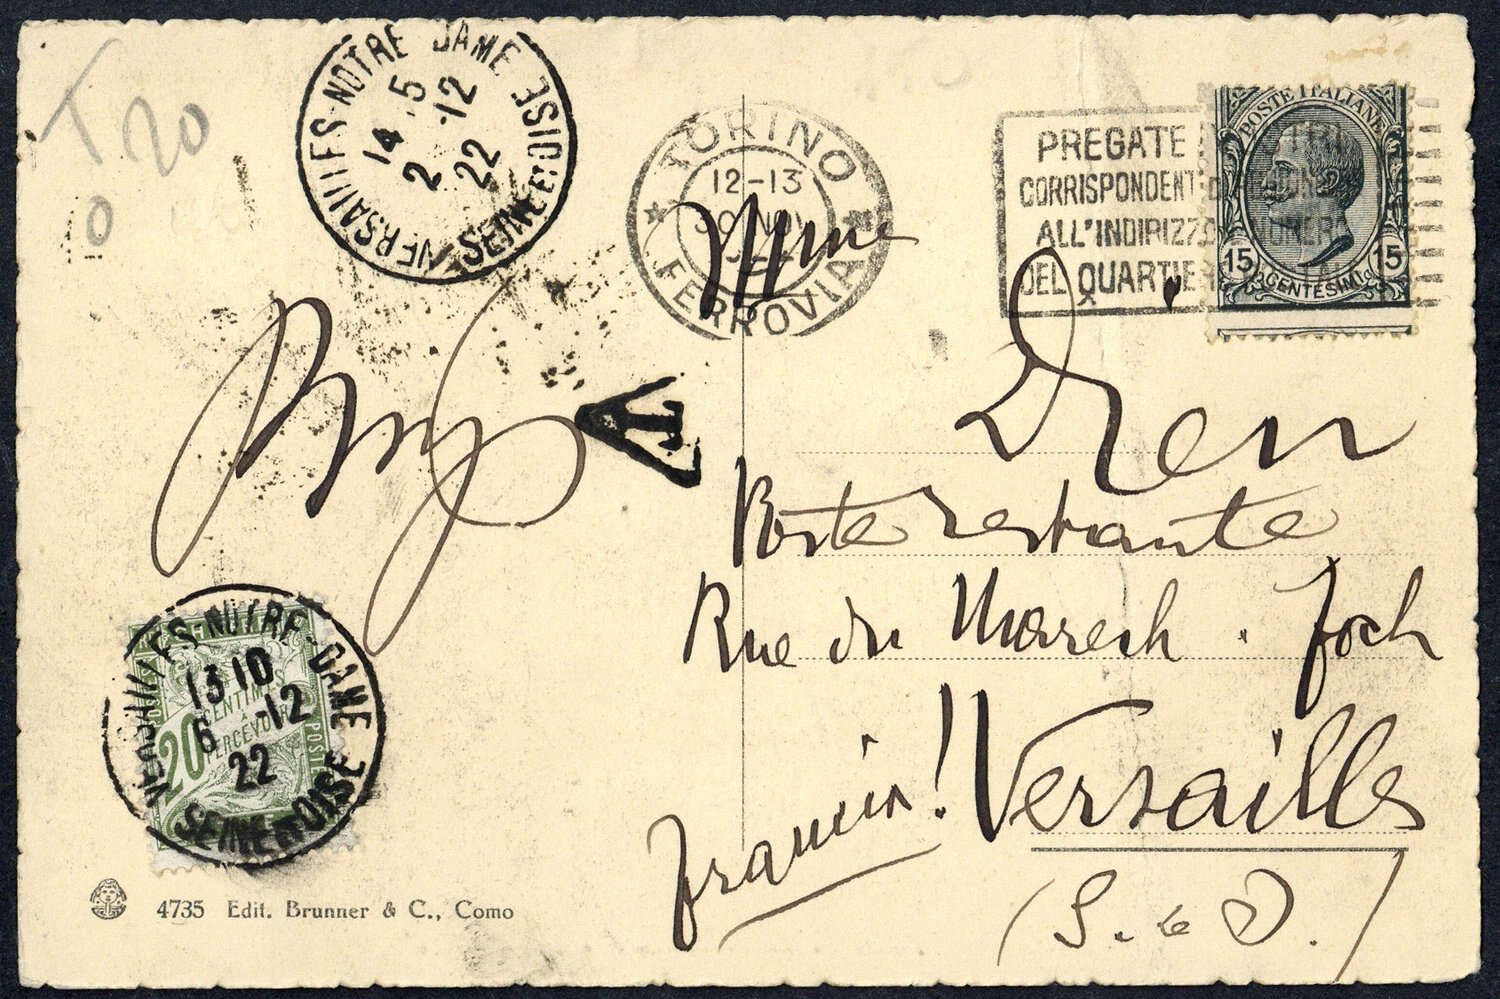 T 20
0
VERSAILLES-NOTRE-DAME
14 5
2 -12
22
SEINE ET OISE
TORINO
12-13
30 NOV
FERROVIA
PREGATE
CORRISPONDENTI
ALL'INDIRIZZO NUMERO
DEL QUARTIERE
POSTE ITALIANE
15 CENTESIMI 15
T
Dren
Poste restante
Rue du Marech. Foch
Versailles
(S. et O.)
Francia!
VERSAILLES-NOTRE-DAME
13 10
6 -12
22
SEINE ET OISE
20 CENTIMES
À
PERCEVOIR
POSTES
4735 Edit. Brunner & C., Como